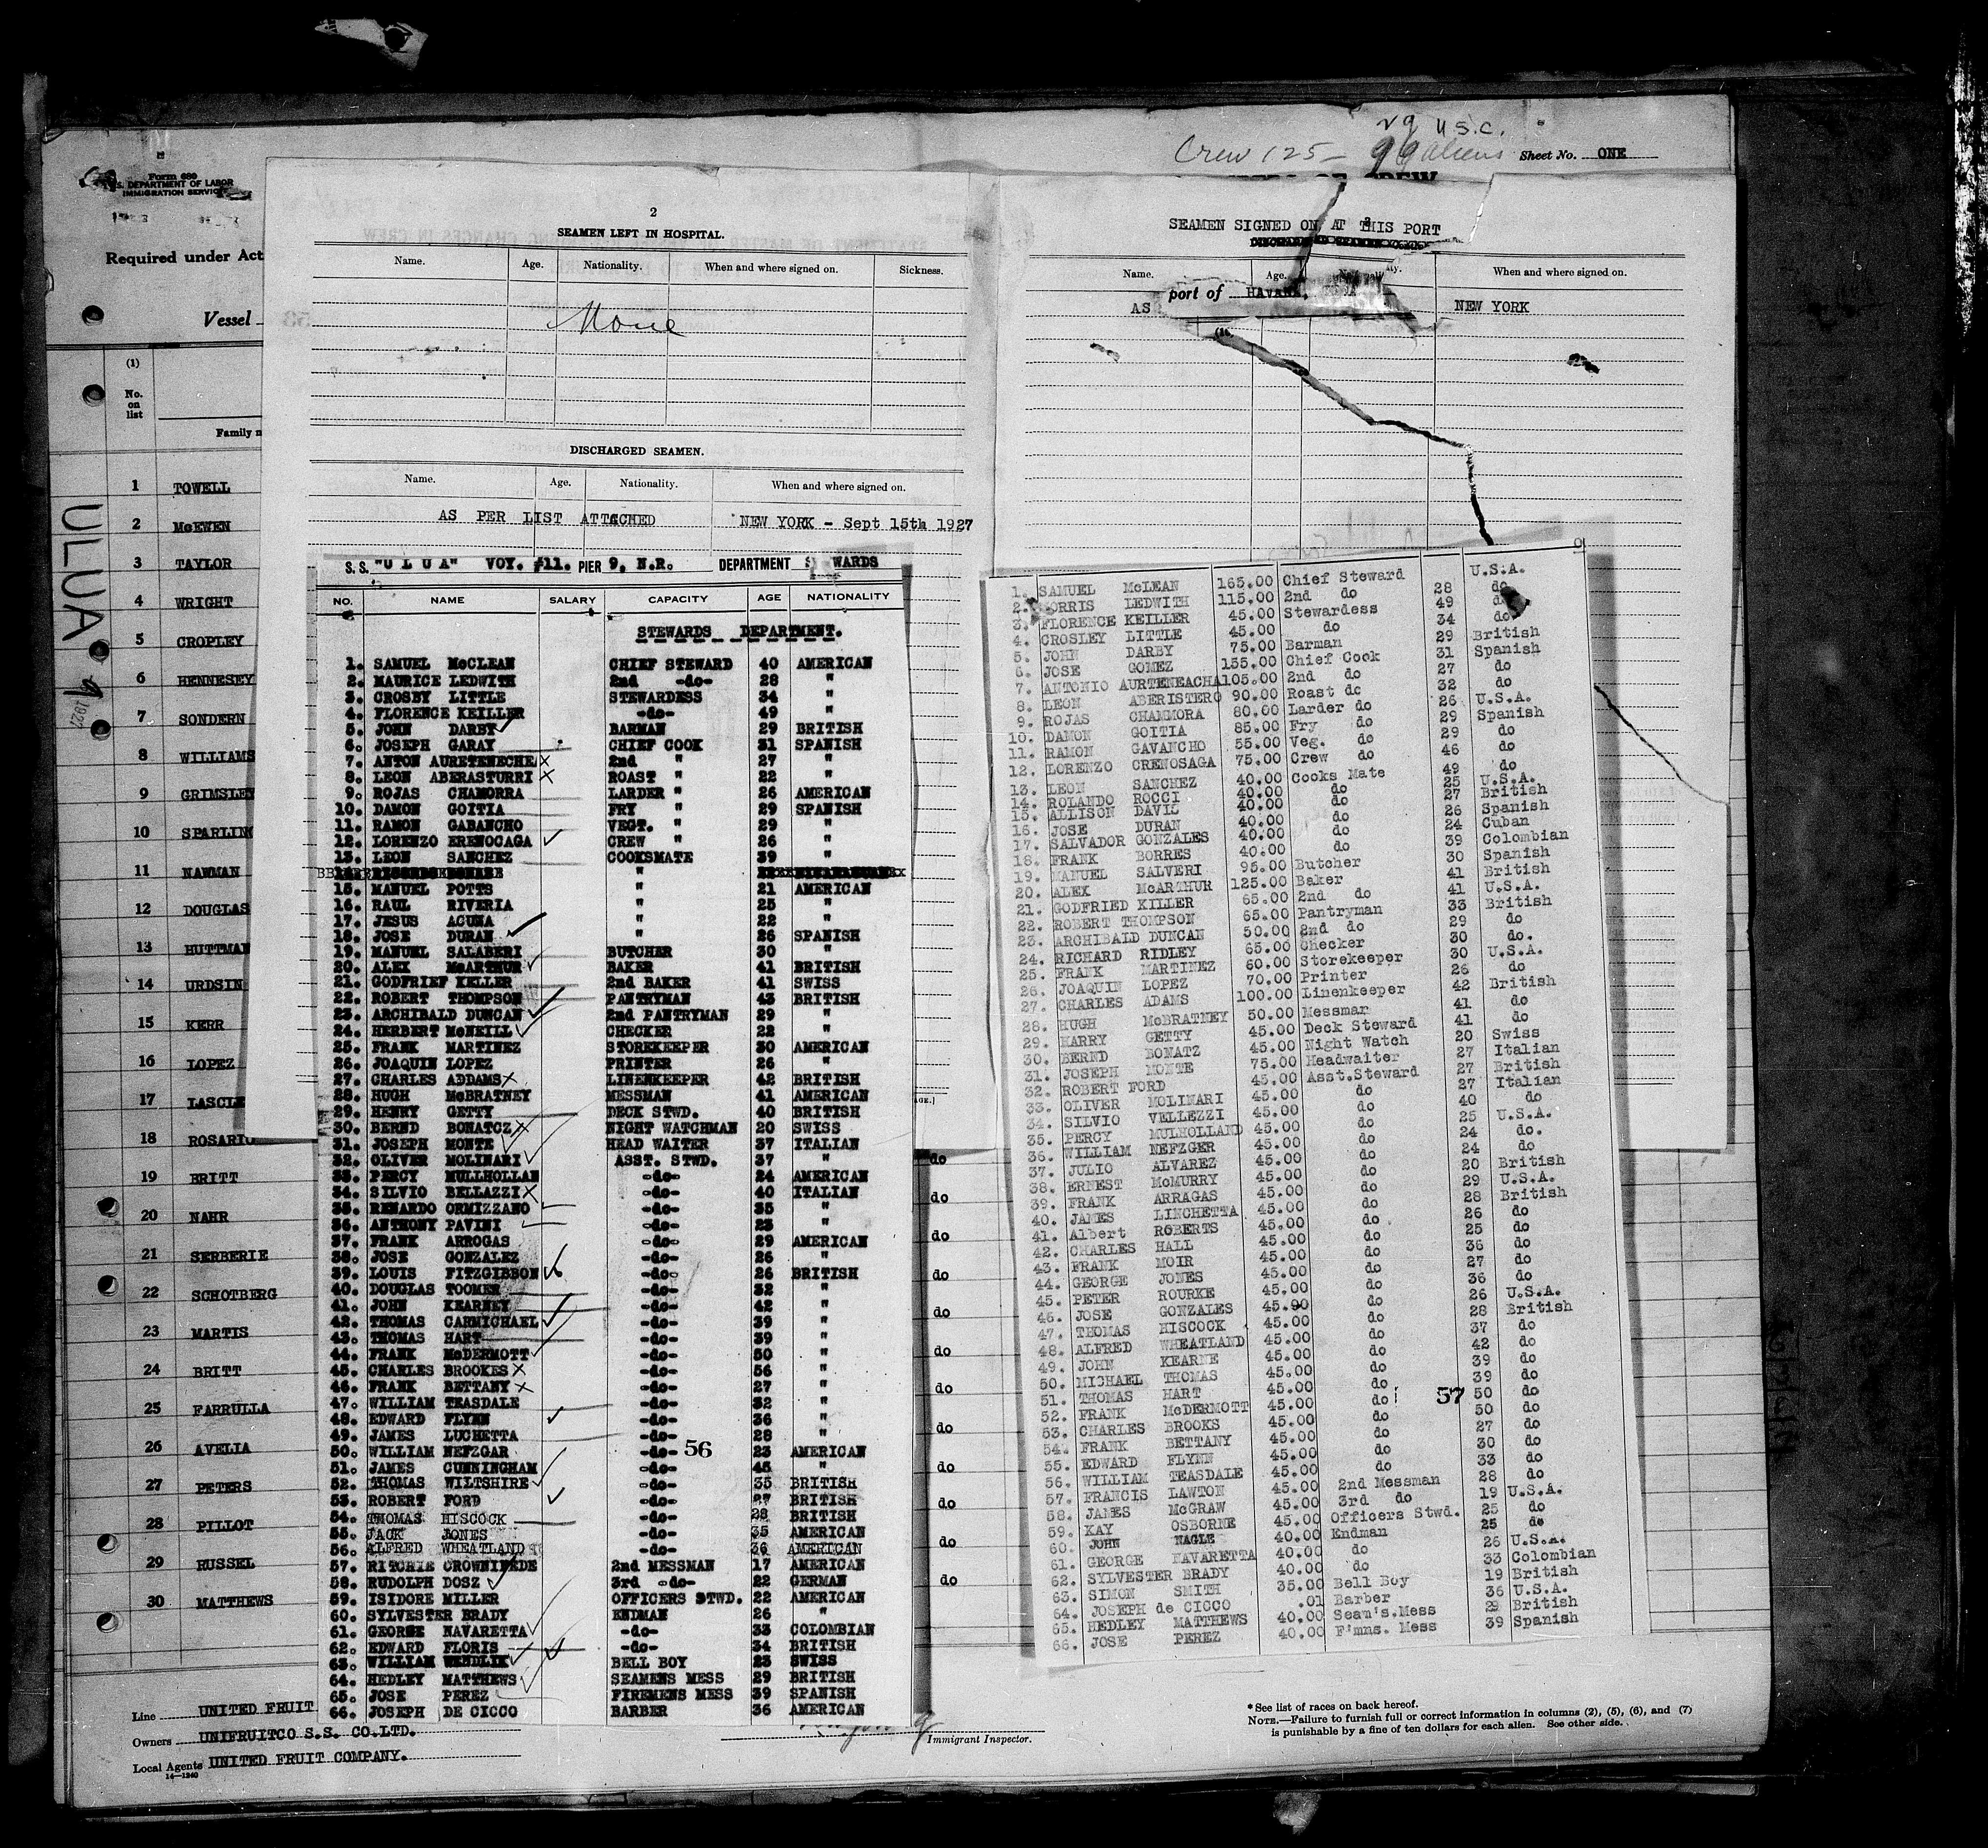 29 U.S.C.
Crew 125 - 99 aliens Sheet No. ONE
Form 689
U.S. DEPARTMENT OF LABOR
IMMIGRATION SERVICE
Required under Act
Vessel
(1)
No. on list
Family n
ULUA
9
1927
1 TOWELL
2 McEWEN
3 TAYLOR
4 WRIGHT
5 CROPLEY
6 HENNESEY
7 SONDERN
8 WILLIAMS
9 GRIMSLEY
10 SPARLING
11 NAWMAN
12 DOUGLAS
13 HUTTMAN
14 URDSIN
15 KERR
16 LOPEZ
17 LASCLE
18 ROSARIO
19 BRITT
20 NAHR
21 SERBERIE
22 SCHOTBERG
23 MARTIS
24 BRITT
25 FARRULLA
26 AVELIA
27 PETERS
28 PILLOT
29 RUSSEL
30 MATTHEWS
Line UNITED FRUIT
Owners UNIFRUITCO S.S. CO.LTD.
Local Agents UNITED FRUIT COMPANY.
14-1240
2
SEAMEN LEFT IN HOSPITAL.
Name. Age. Nationality. When and where signed on. Sickness.
None
DISCHARGED SEAMEN.
Name. Age. Nationality. When and where signed on.
AS PER LIST ATTACHED NEW YORK - Sept 15th 1927
S. S. "U L U A" VOY. #11. PIER 9, N.R. DEPARTMENT WARDS
NO. NAME SALARY CAPACITY AGE NATIONALITY
STEWARDS DEPARTMENT.
1. SAMUEL McCLEAN CHIEF STEWARD 40 AMERICAN
2. MAURICE LEDWITH 2nd -do- 28 "
3. CROSBY LITTLE STEWARDESS 34 "
4. FLORENCE KEILLER -do- 49 "
5. JOHN DARBY BARMAN 29 BRITISH
6. JOSEPH GARAY CHIEF COOK 31 SPANISH
7. ANTON AURETENECHE 2nd " 27 "
8. LEON ABERASTURRI ROAST " 22 "
9. ROJAS CHAMORRA LARDER " 26 AMERICAN
10. DAMON GOITIA FRY " 29 SPANISH
11. RAMON GABANCHO VEGT. " 29 "
12. LORENZO ERENOCAGA CREW " 26 "
13. LEON SANCHEZ COOKSMATE 39 "
15. MANUEL POTTS " 21 AMERICAN
16. RAUL RIVERIA " 25 "
17. JESUS ACUNA " 22 "
18. JOSE DURAN " 26 SPANISH
19. MANUEL SALABERI BUTCHER 30 "
20. ALEX McARTHUR BAKER 41 BRITISH
21. GODFRIEF KELLER 2nd BAKER 41 SWISS
22. ROBERT THOMPSON PANTRYMAN 43 BRITISH
23. ARCHIBALD DUNCAN 2nd PANTRYMAN 29 "
24. HERBERT McNEILL CHECKER 22 "
25. FRANK MARTINEZ STOREKEEPER 30 AMERICAN
26. JOAQUIN LOPEZ PRINTER 26 "
27. CHARLES ADDAMS LINENKEEPER 42 BRITISH
28. HUGH McBRATNEY MESSMAN 41 AMERICAN
29. HENRY GETTY DECK STWD. 40 BRITISH
30. BERND BONATCZ NIGHT WATCHMAN 20 SWISS
31. JOSEPH MONTE HEAD WAITER 37 ITALIAN
32. OLIVER MOLINARI ASST. STWD. 37 "
33. PERCY MULLHOLLAN -do- 24 AMERICAN
34. SILVIO BELLAZZI -do- 40 ITALIAN
35. RENARDO ORMIZZANO -do- 35 "
36. ANTHONY PAVINI -do- 23 "
37. FRANK ARROGAS -do- 29 AMERICAN
38. JOSE GONZALEZ -do- 26 "
39. LOUIS FITZGIBBON -do- 26 BRITISH
40. DOUGLAS TOOMER -do- 32 "
41. JOHN KEARNEY -do- 42 "
42. THOMAS CARMICHAEL -do- 39 "
43. THOMAS HART -do- 39 "
44. FRANK McDERMOTT -do- 50 "
45. CHARLES BROOKES -do- 56 "
46. FRANK BETTANY -do- 27 "
47. WILLIAM TEASDALE -do- 32 "
48. EDWARD FLYNN -do- 36 "
49. JAMES LUCHETTA -do- 28 "
50. WILLIAM NEFZGAR -do- 56 23 AMERICAN
51. JAMES CUNNINGHAM -do- 45 "
52. THOMAS WILTSHIRE -do- 35 BRITISH
53. ROBERT FORD -do- 27 BRITISH
54. THOMAS HISCOCK -do- 28 BRITISH
55. JACK JONES -do- 35 AMERICAN
56. ALFRED WHEATLAND -do- 36 AMERICAN
57. RITCHIE CROWNIFEDE 2nd MESSMAN 17 AMERICAN
58. RUDOLPH DOSZ 3rd -do- 22 GERMAN
59. ISIDORE MILLER OFFICERS STWD. 22 AMERICAN
60. SYLVESTER BRADY ENDMAN 26 "
61. GEORGE NAVARETTA -do- 33 COLOMBIAN
62. EDWARD FLORIS -do- 34 BRITISH
63. WILLIAM WENDLIK BELL BOY 23 SWISS
64. HEDLEY MATTHEWS SEAMENS MESS 29 BRITISH
65. JOSE PEREZ FIREMENS MESS 39 SPANISH
66. JOSEPH DE CICCO BARBER 36 AMERICAN
Immigrant Inspector.
SEAMEN SIGNED ON AT THIS PORT
Name. Age. Nationality. When and where signed on.
AS port of HAVANA, NEW YORK
1. SAMUEL McLEAN 165.00 Chief Steward U.S.A.
2. MORRIS LEDWITH 115.00 2nd do 28 do
3. FLORENCE KEILLER 45.00 Stewardess 49 do
4. CROSLEY LITTLE 45.00 do 34 do
5. JOHN DARBY 75.00 Barman 29 British
6. JOSE GOMEZ 155.00 Chief Cook 31 Spanish
7. ANTONIO AURTENEACHA 105.00 2nd do 27 do
8. LEON ABERISTERO 90.00 Roast do 32 do
9. ROJAS CHAMMORA 80.00 Larder do 26 U.S.A.
10. DAMON GOITIA 85.00 Fry do 29 Spanish
11. RAMON GAVANCHO 55.00 Veg. do 29 do
12. LORENZO CRENOSAGA 75.00 Crew do 46 do
13. LEON SANCHEZ 40.00 Cooks Mate 49 do
14. ROLANDO ROCCI 40.00 do 25 U.S.A.
15. ALLISON DAVIS 40.00 do 27 British
16. JOSE DURAN 40.00 do 26 Spanish
17. SALVADOR GONZALES 40.00 do 24 Cuban
18. FRANK BORRES 40.00 do 39 Colombian
19. MANUEL SALVERI 95.00 Butcher 30 Spanish
20. ALEX McARTHUR 125.00 Baker 41 British
21. GODFRIED KILLER 65.00 2nd do 41 U.S.A.
22. ROBERT THOMPSON 65.00 Pantryman 33 British
23. ARCHIBALD DUNCAN 50.00 2nd do 29 do
24. RICHARD RIDLEY 65.00 Checker 30 do.
25. FRANK MARTINEZ 60.00 Storekeeper 30 U.S.A.
26. JOAQUIN LOPEZ 70.00 Printer 26 do
27. CHARLES ADAMS 100.00 Linenkeeper 42 British
28. HUGH McBRATNEY 50.00 Messman 41 do
29. HARRY GETTY 45.00 Deck Steward 41 do
30. BERND BONATZ 45.00 Night Watch 20 Swiss
31. JOSEPH MONTE 75.00 Headwaiter 27 Italian
32. ROBERT FORD 45.00 Asst.Steward 27 British
33. OLIVER MOLINARI 45.00 do 27 Italian
34. SILVIO VELLEZZI 45.00 do 40 do
35. PERCY MULHOLLAND 45.00 do 25 U.S.A.
36. WILLIAM NEFZGER 45.00 do 24 do.
37. JULIO ALVAREZ 45.00 do 24 do
38. ERNEST McMURRY 45.00 do 20 British
39. FRANK ARRAGAS 45.00 do 29 U.S.A.
40. JAMES LINCHETTA 45.00 do 28 British
41. Albert ROBERTS 45.00 do 26 do
42. CHARLES HALL 45.00 do 25 do
43. FRANK MOIR 45.00 do 36 do
44. GEORGE JONES 45.00 do 27 do
45. PETER ROURKE 45.00 do 36 do
46. JOSE GONZALES 45.00 do 26 U.S.A.
47. THOMAS HISCOCK 45.00 do 28 British
48. ALFRED WHEATLAND 45.00 do 37 do
49. JOHN KEARNE 45.00 do 42 do
50. MICHAEL THOMAS 45.00 do 39 do
51. THOMAS HART 45.00 do 39 do
52. FRANK McDERMOTT 45.00 do 57 50 do
53. CHARLES BROOKS 45.00 do 50 do
54. FRANK BETTANY 45.00 do 27 do
55. EDWARD FLYNN 45.00 do 30 do
56. WILLIAM TEASDALE 45.00 do 33 do
57. FRANCIS LAWTON 45.00 2nd Messman 28 do
58. JAMES McGRAW 45.00 3rd do 19 U.S.A.
59. KAY OSBORNE 45.00 Officers Stwd. 25 do
60. JOHN NAGLE 40.00 Endman 25 do
61. GEORGE NAVARETTA 40.00 do 26 U.S.A.
62. SYLVESTER BRADY 40.00 do 33 Colombian
63. SIMON SMITH 35.00 Bell Boy 19 British
64. JOSEPH de CICCO .01 Barber 36 U.S.A.
65. HEDLEY MATTHEWS 40.00 Seam's.Mess 29 British
66. JOSE PEREZ 40.00 F'mns. Mess 39 Spanish
do
do
do
do
do
do
do
do
do
do
do
do
* See list of races on back hereof.
NOTE.—Failure to furnish full or correct information in columns (2), (5), (6), and (7)
is punishable by a fine of ten dollars for each alien. See other side.